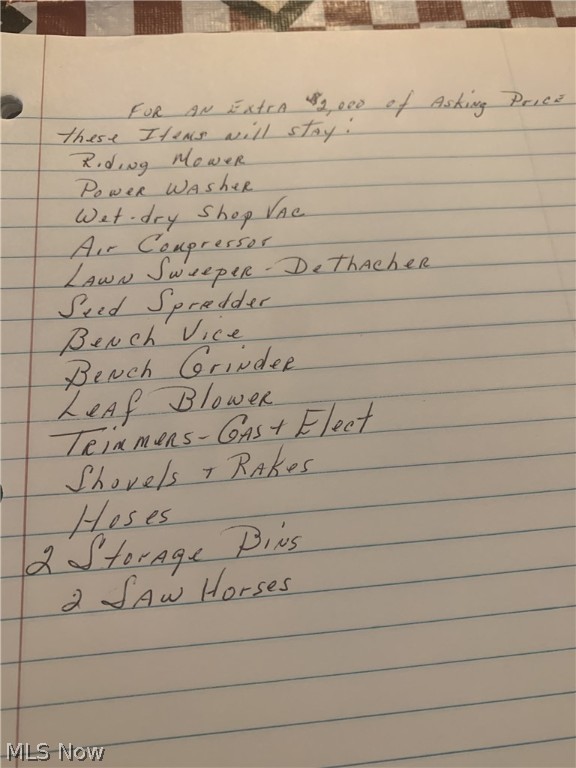 FOR AN Extra $2,000 of Asking Price
these Items will stay:
Riding Mower
Power Washer
Wet-dry Shop Vac
Air Compressor
Lawn Sweeper - DeThacher
Seed Spredder
Bench Vice
Bench Grinder
Leaf Blower
Trimmers - Gas + Elect
Shovels + Rakes
Hoses
2 Storage Bins
2 Saw Horses
MLS Now